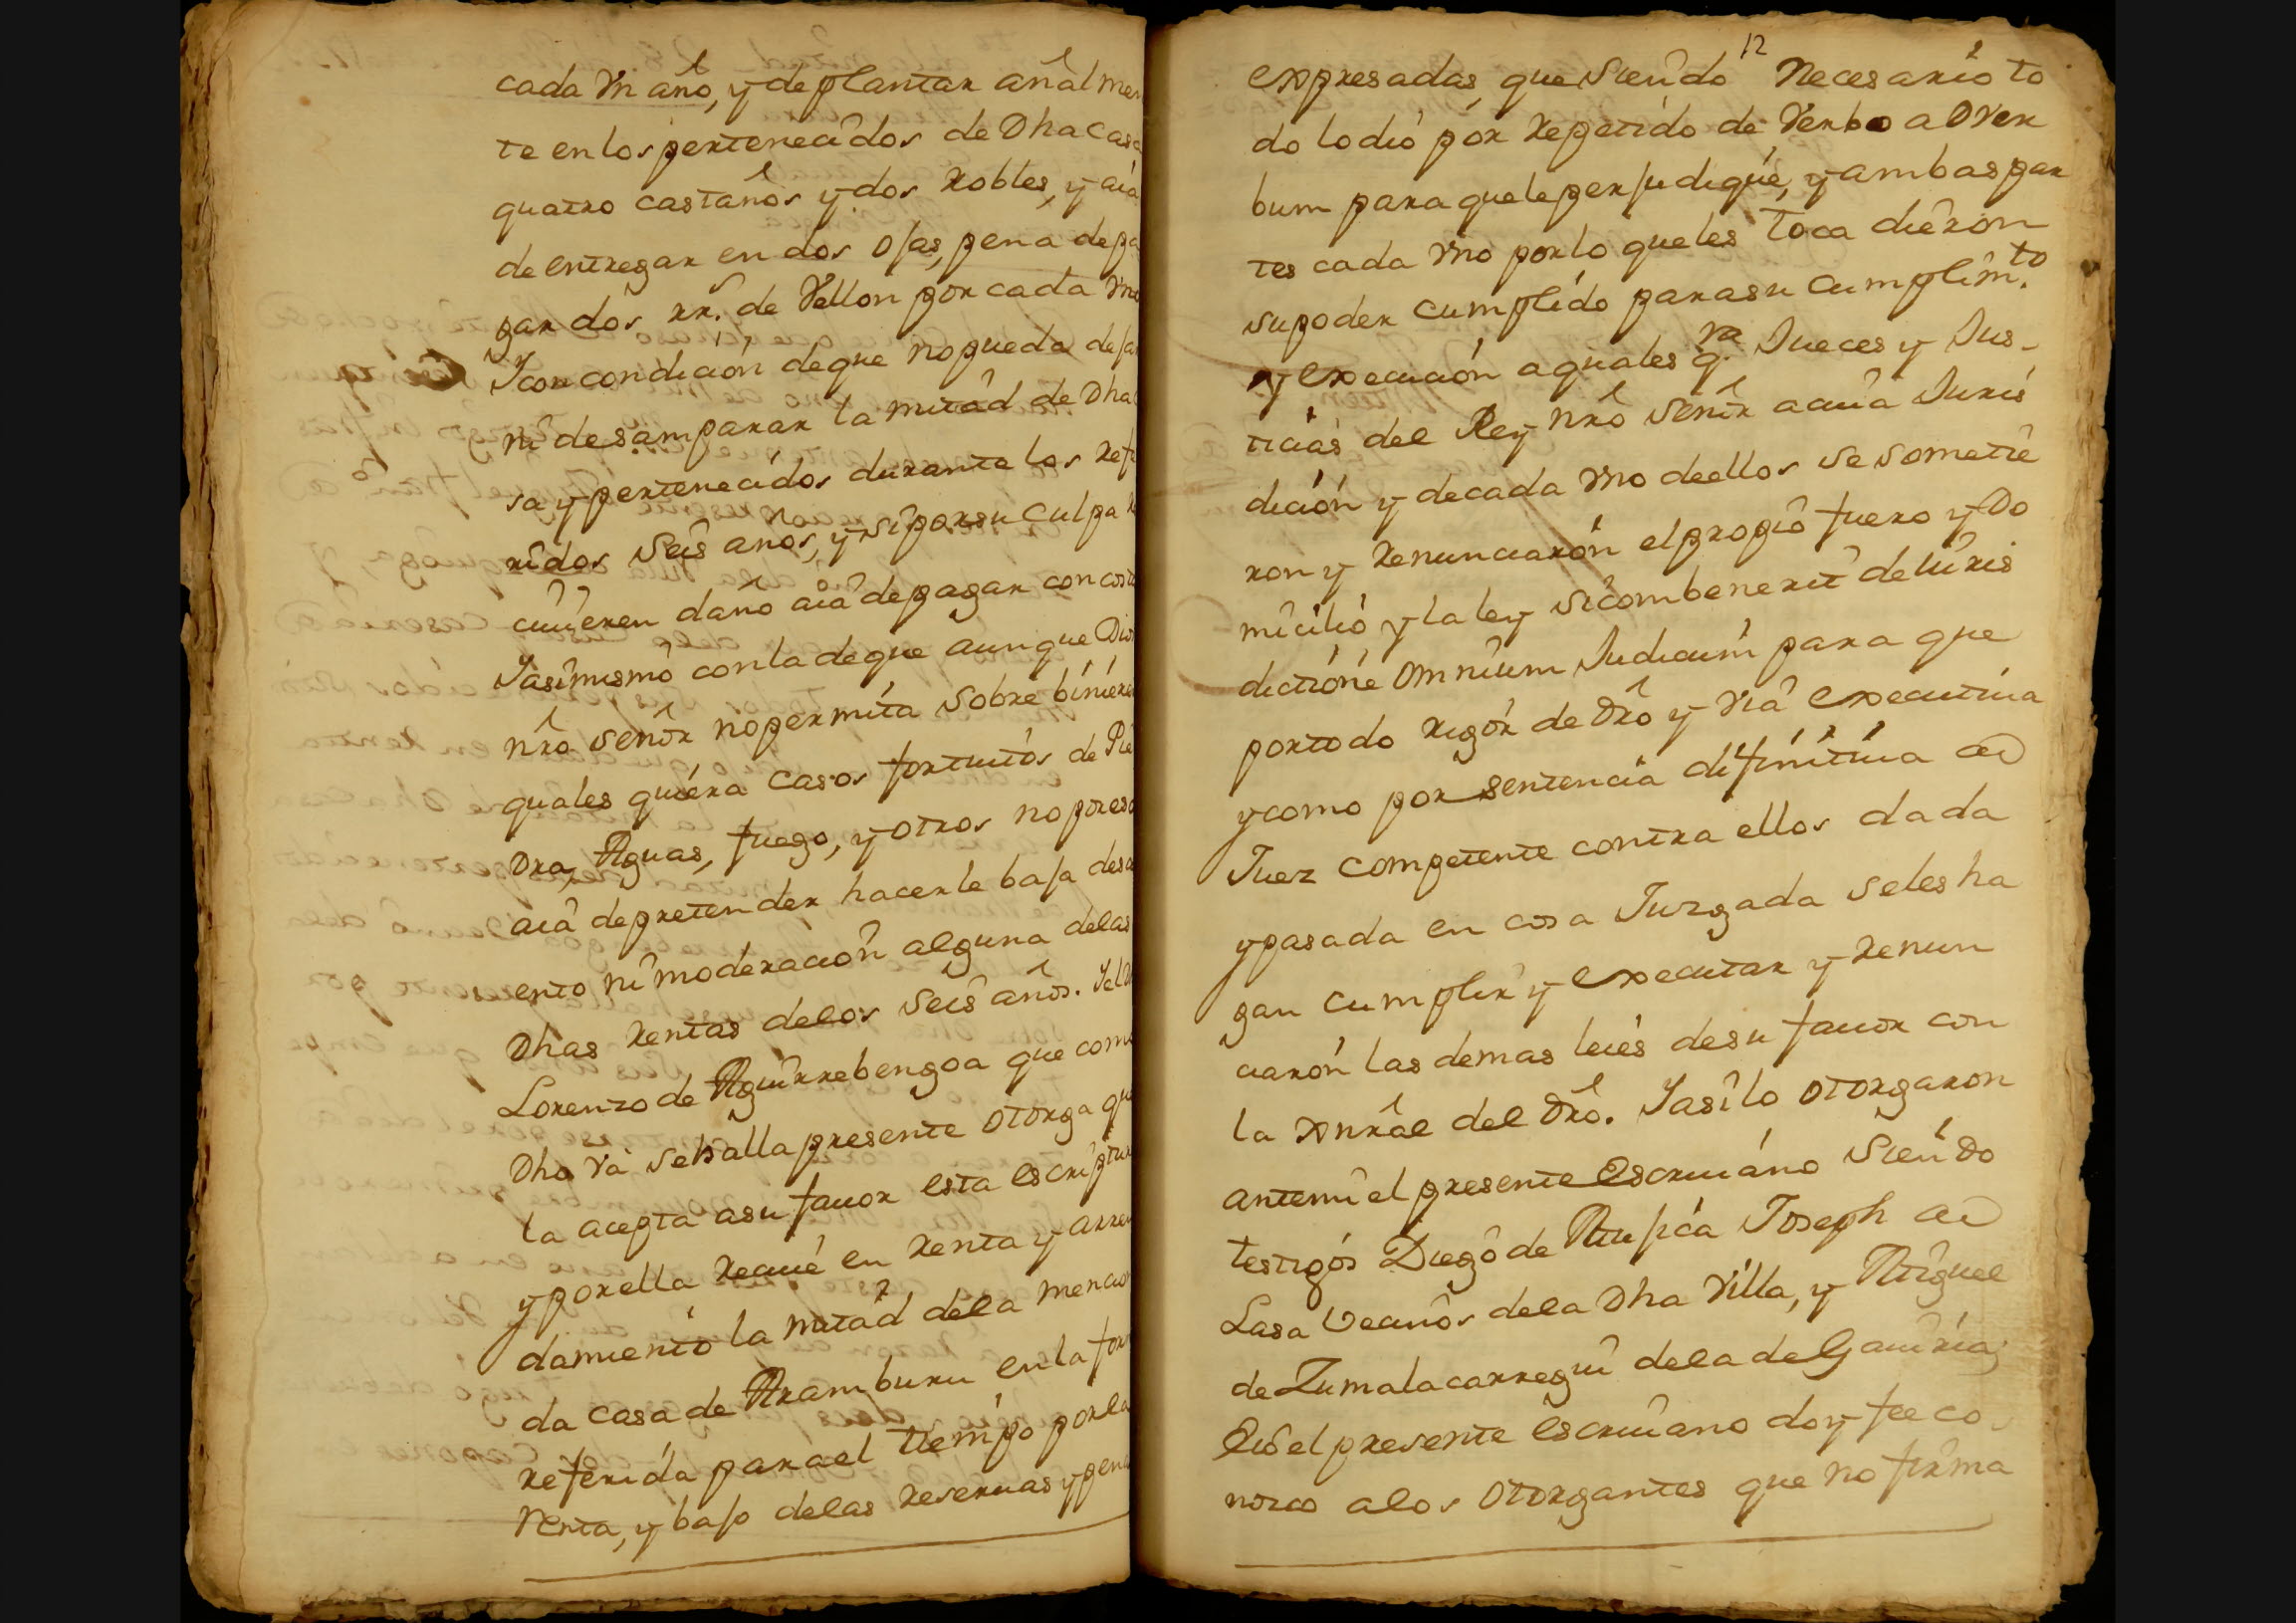 cada Vn año, y de plantar añalmen
te en los pertenecidos de Dha casa
quatro castaños y dos Robles, y aia
de entregar en dos ojas, pena de pa
gar dos rr.ˢ de Vellon por cada Vno
Y con condicion de que no pueda dejar
ni desamparar la mitad de Dha
sa y pertenecidos durante los refe
ridos seis años, y si por su culpa re
ciuieren daño aia de pagar con costas
Y asimismo con la de que aunque Dios
nrô señor no permita sobre binieren
quales quiera casos fortuitos de Pie
Dra, Aguas, fuego, y otros no por eso
aia de pretender hacerle baja desc
ento ni moderacion alguna de las
Dhas Rentas de los seis años. Y el
Lorenzo de Aguirrebengoa que como
Dho Va se halla presente otorga que
la acepta a su fauor esta escriptura
y por ella Reciue en Renta y arren
damiento la mitad de la mencio
da casa de Aramburu en la for
referida para el tiempo por la
Renta, y bajo de las Reseruas y pena
12
expresadas, que siendo Necesario to
do lo dio por Repetido de Verbo ad Ver
bum para que le perjudique, y ambas par
tes cada Vno por lo que les toca dieron
su poder cumplido para su cumplim.ᵗᵒ
y execucion a quales q.ʳᵃ Jueces y Jus-
ticias del Rey nrô señor a cuia Juris
dicion y de cada Vno de ellos se sometie
ron y Renunciaron el propio fuero y Do
micilio y la ley si combenerit de iuris
dictione omnium Judicum para que
por todo rigor de drô y Via executiua
y como por sentencia difinitiua de
Juez competente contra ellos dada
y pasada en cosa Juzgada se les ha
gan cumplir y executar y Renun
ciaron las demas leies de su fauor con
la Gnrâl del drô. Y asi lo otorgaron
ante mi el presente Escriuano siendo
testigos Diego de Joseph de
Lasa Vecinos de la Dha Villa, y Miguel
de Zumalacarregui de la de Gauiria;
Eio el presente escriuano doy fee co
nozco a los otorgantes que no firma